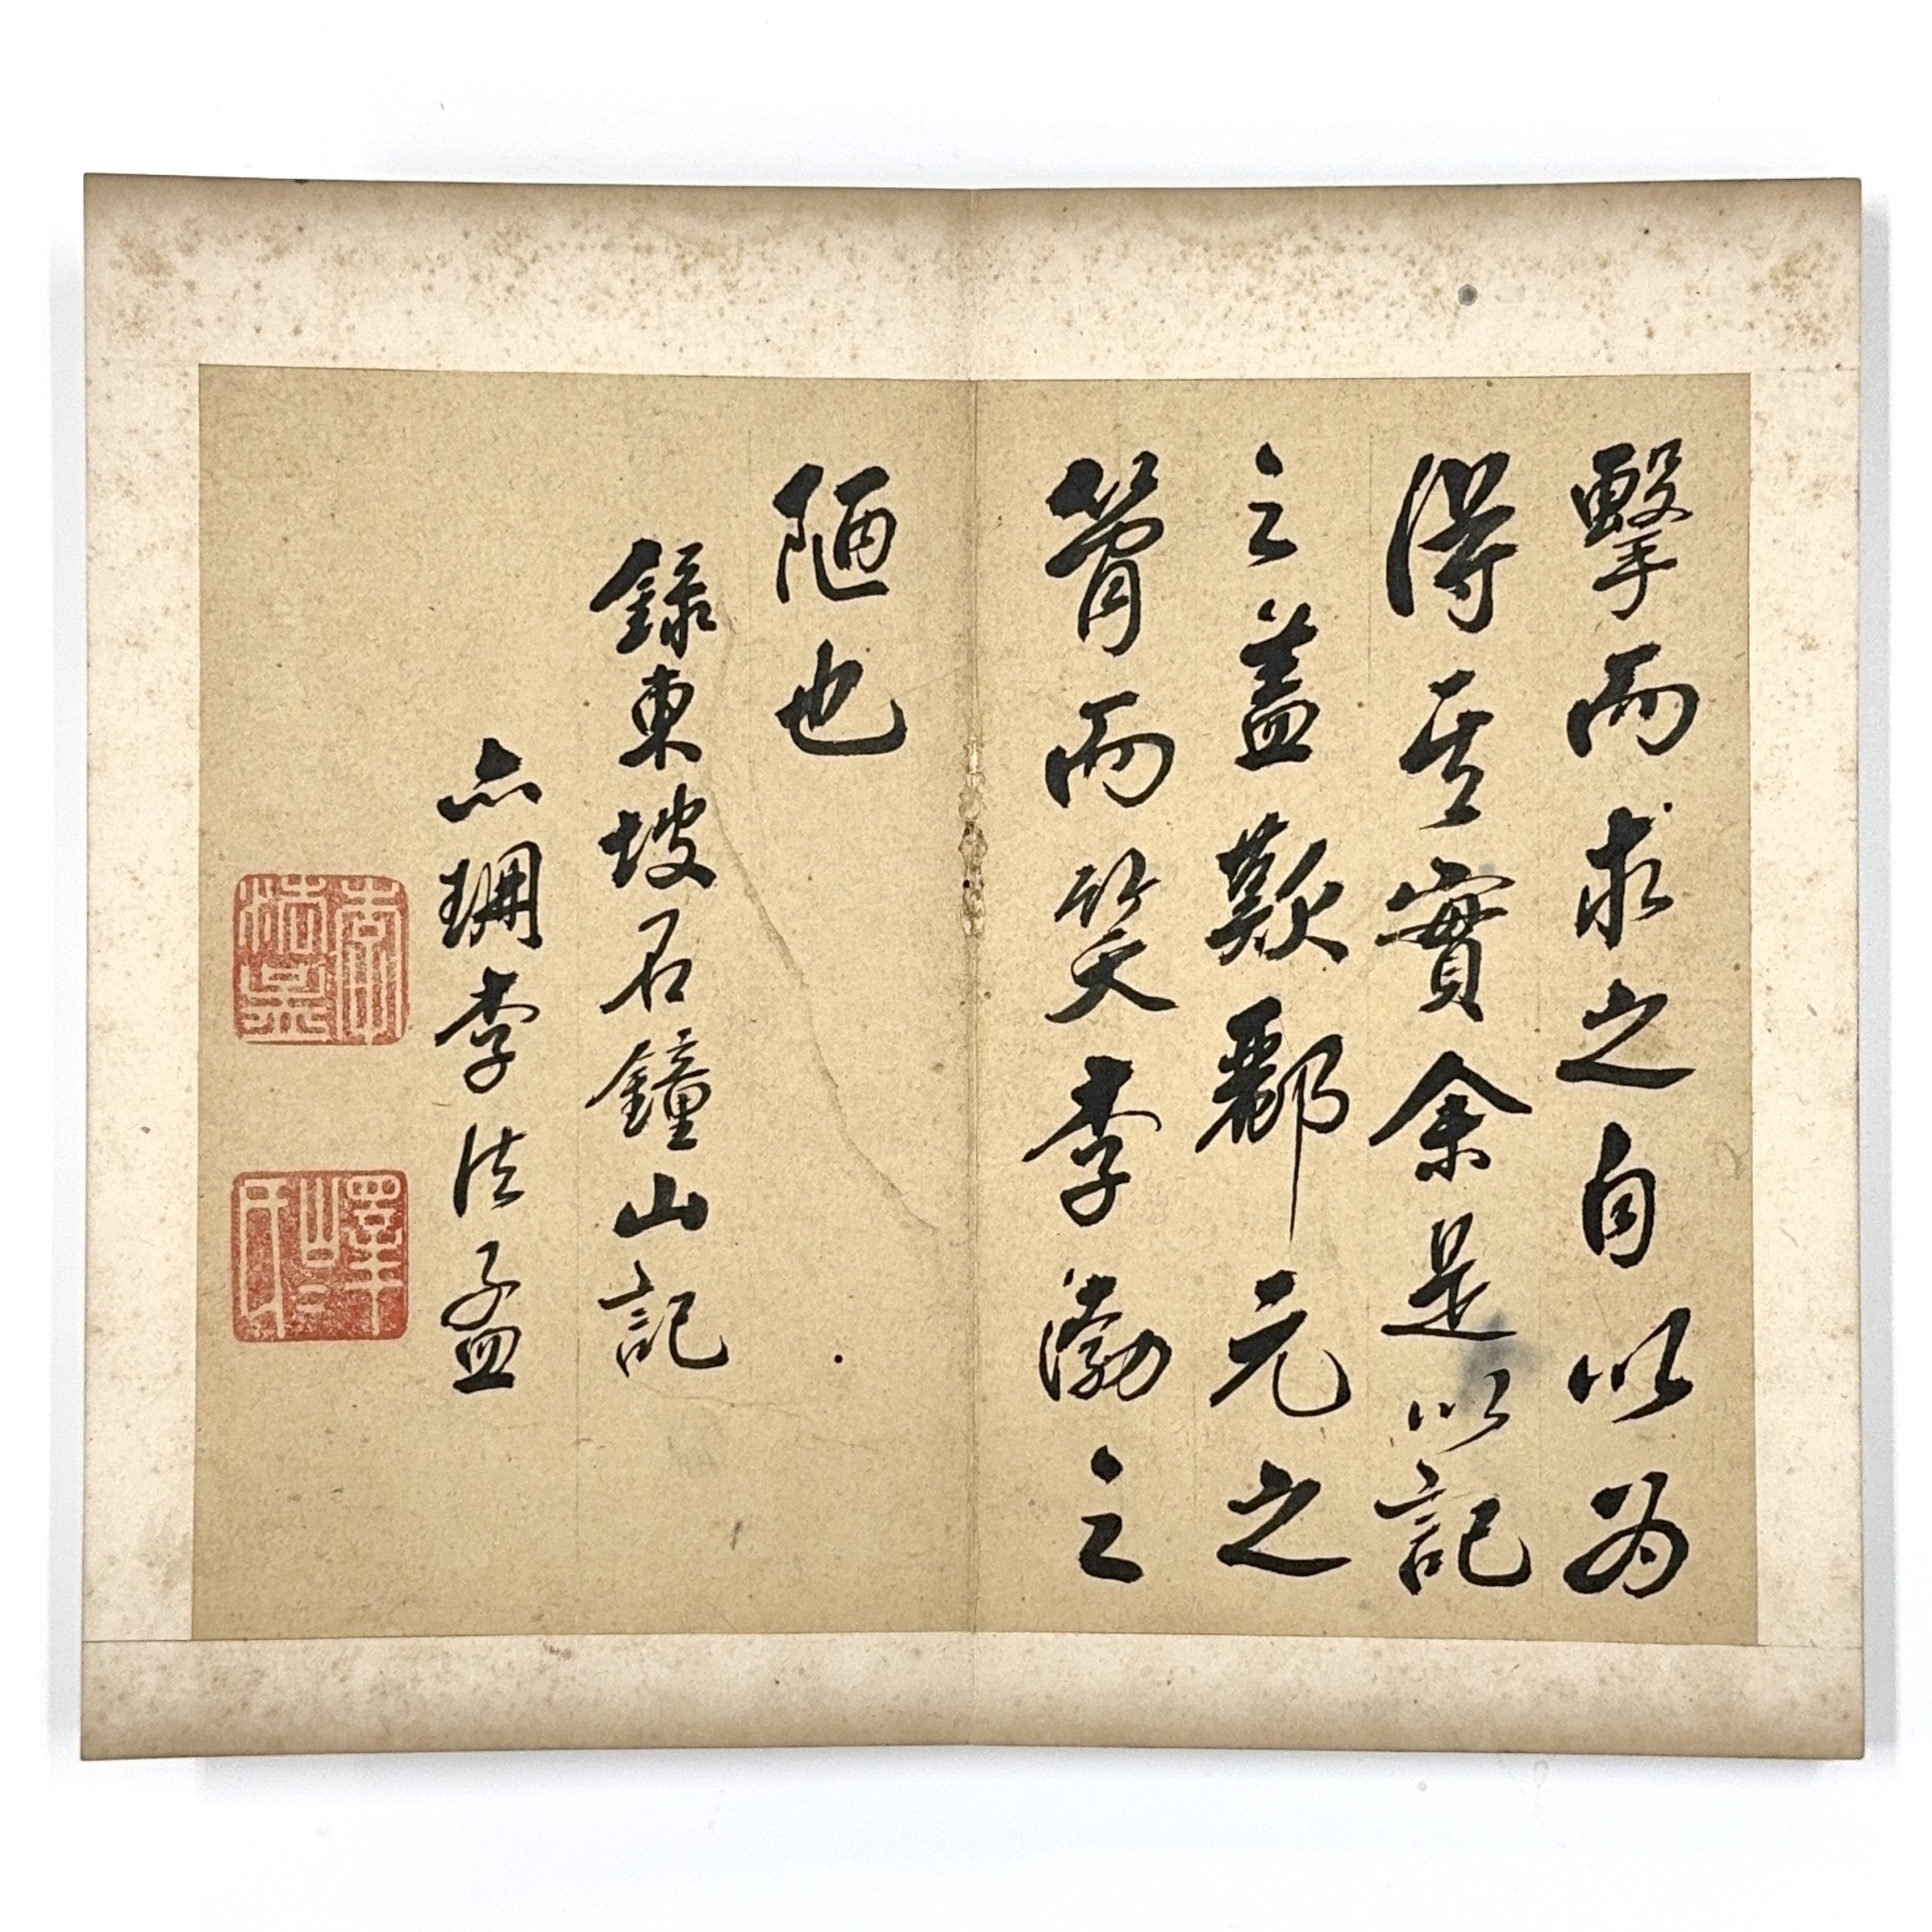 擊而求之自以為
得其實余是以記
之蓋歎酈元之
簡而笑李渤之
陋也
錄東坡石鐘山記
亦珊李法孟